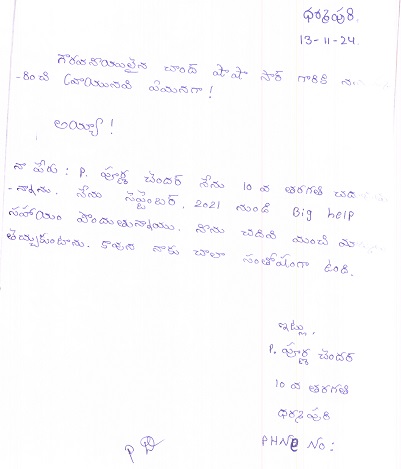 ధర్మపురి.
13-11-24.
గౌరవనీయులైన చాంద్ పాషా సార్ గారికి
-రించి వ్రాయునది ఏమనగా !
అయ్యా !
నా పేరు : P. పూర్ణ చందర్ నేను 10 వ తరగతి చదు
-న్నాను. నేను సెప్టెంబర్, 2021 నుండి Big help
సహాయం పొందుతున్నాను. నేను చదివి మంచి మా
తెచ్చుకుంటాను. కావున నాకు చాలా సంతోషంగా ఉంది.
ఇట్లు,
P. పూర్ణ చందర్
10 వ తరగతి
ధర్మపురి
PHNe No :